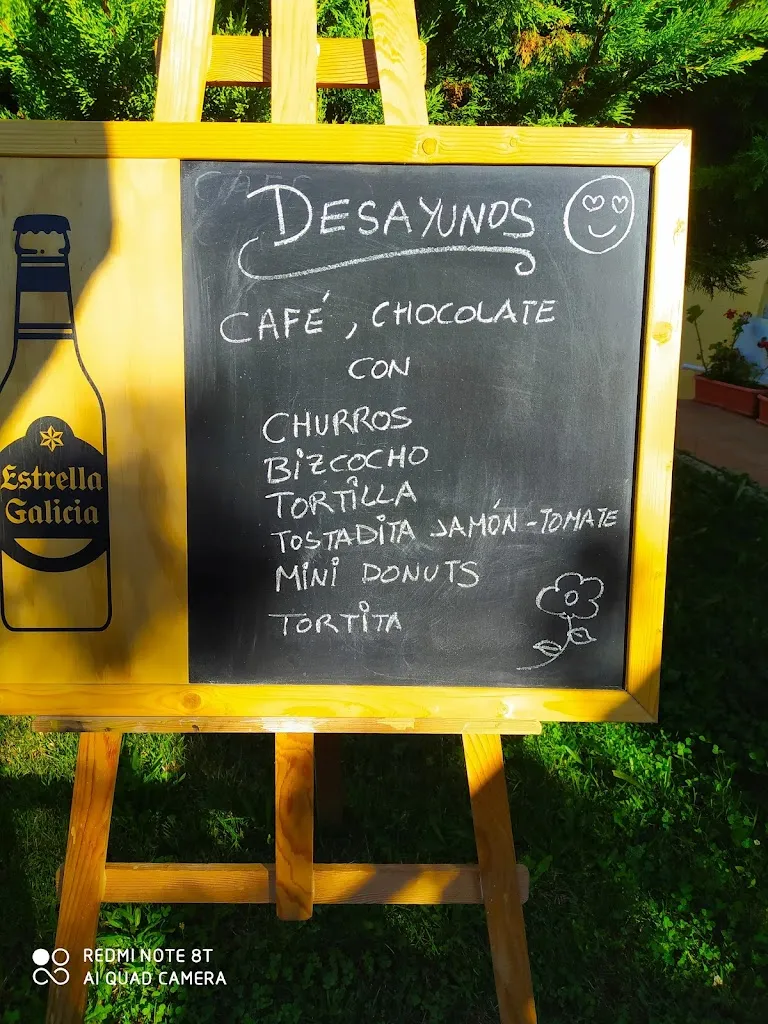 CAFE
DESAYUNOS
CAFÉ, CHOCOLATE
CON
CHURROS
BIZCOCHO
TORTILLA
TOSTADITA JAMÓN-TOMATE
MINI DONUTS
TORTITA
Estrella
Galicia
REDMI NOTE 8T
AI QUAD CAMERA